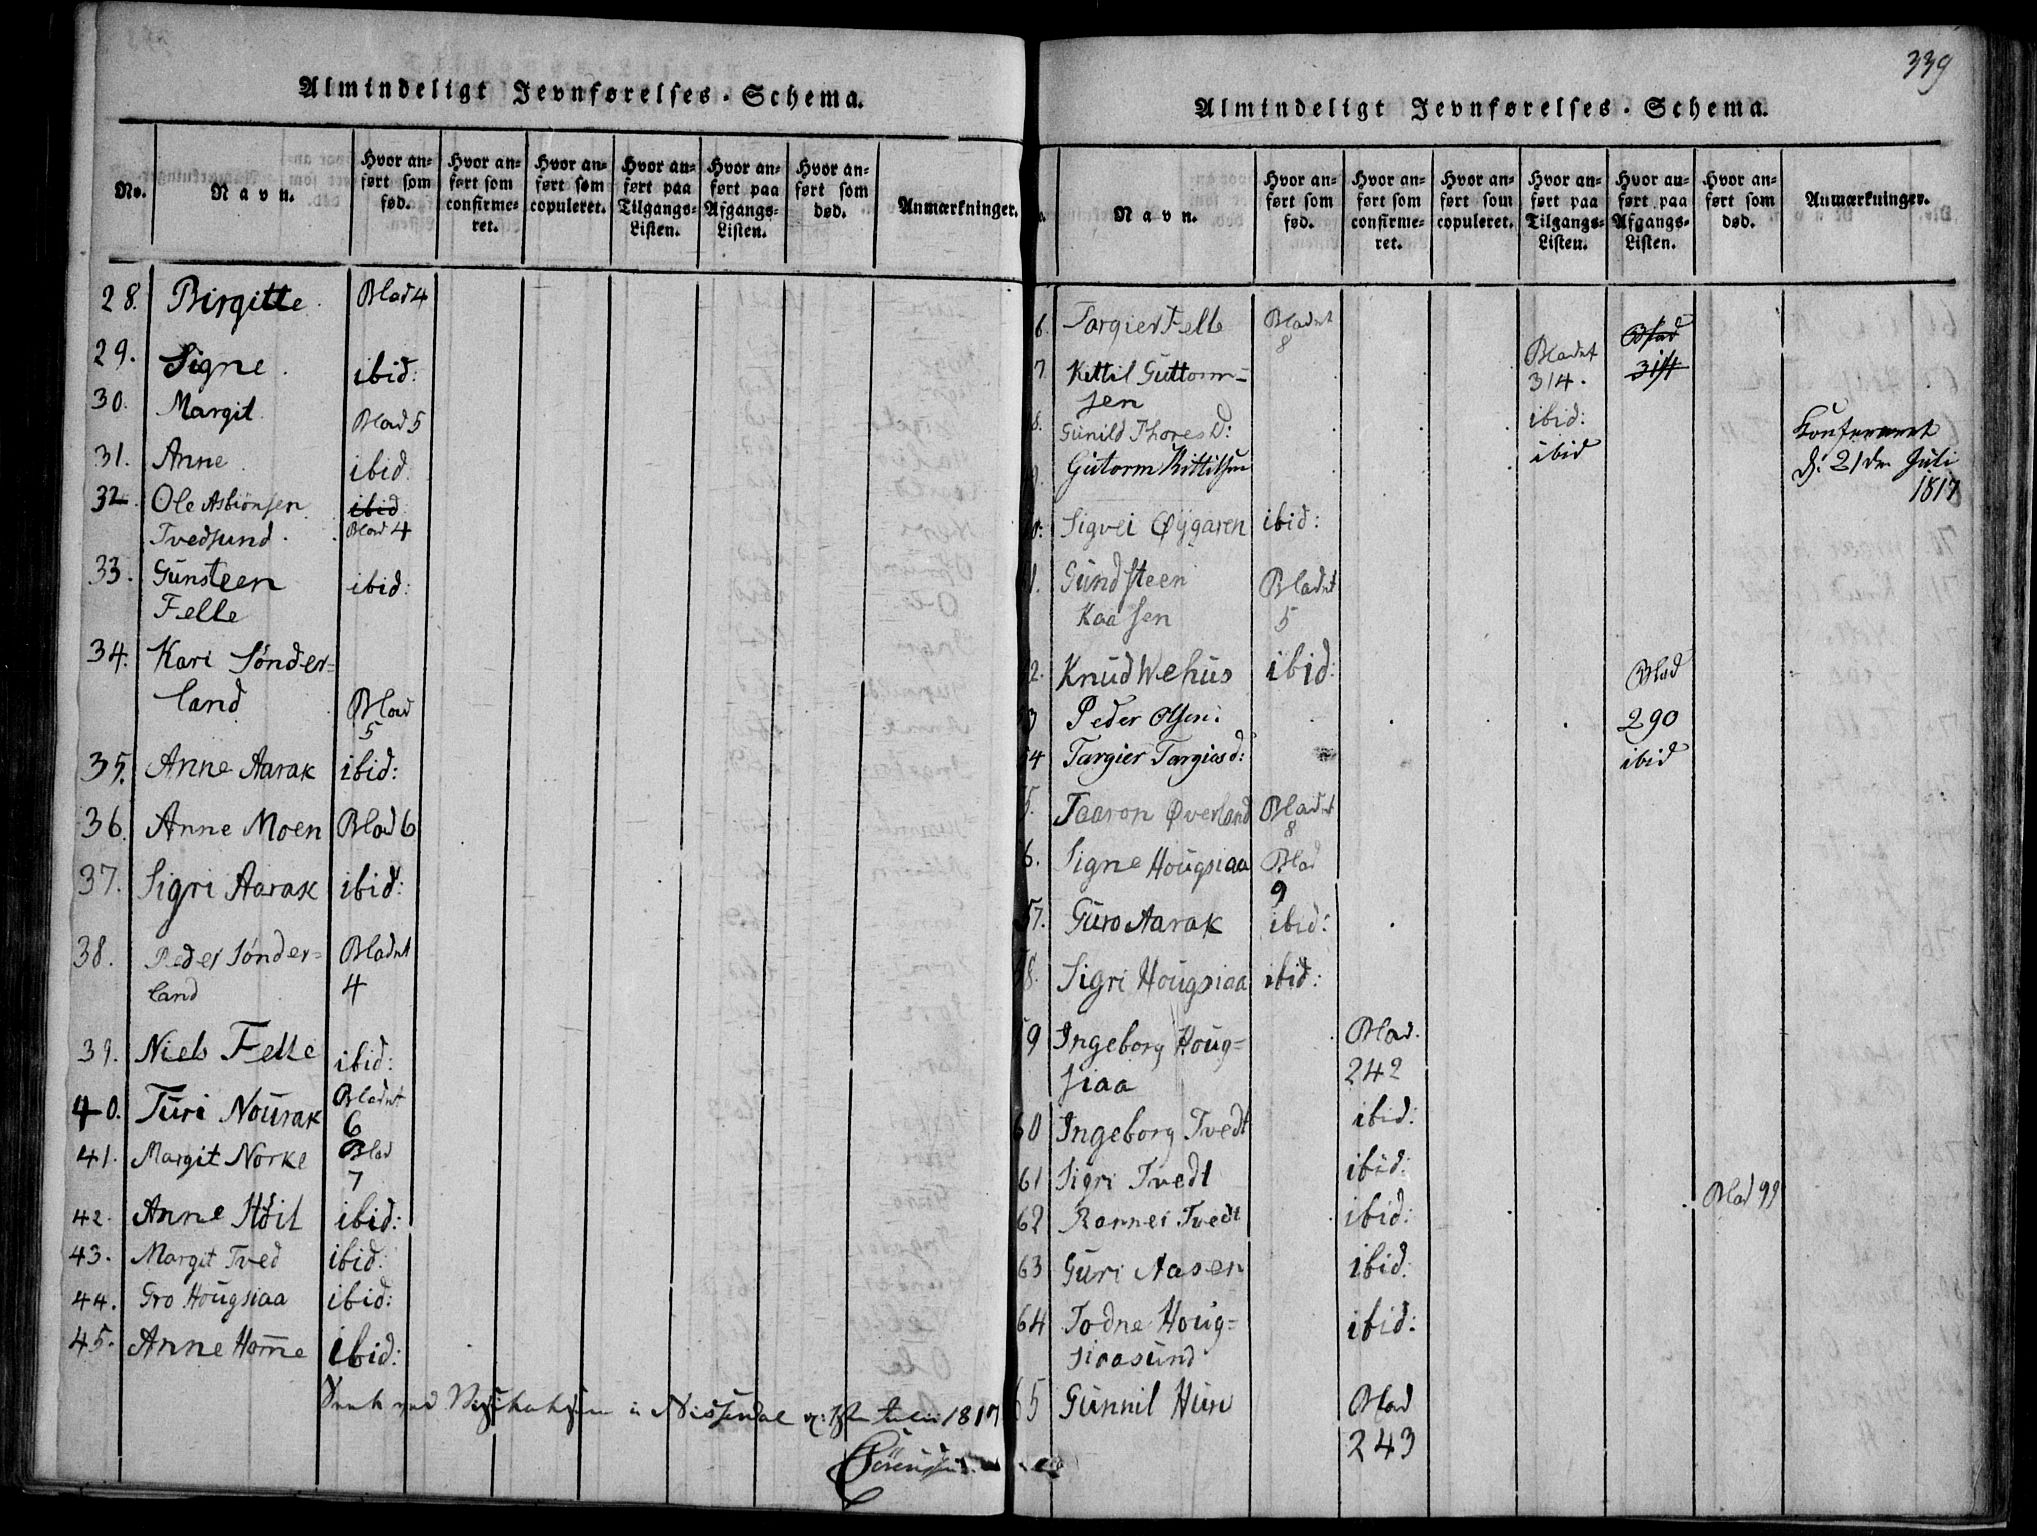 Almindeligt Jevnførelses-Schema.
No. Navn. Hvor anført som fød. Hvor anført som confirmeret. Hvor anført som copuleret. Hvor anført paa Tilgangs-Listen. Hvor anført paa Afgangs-Listen. Hvor anført som død. Anmærkninger.
28. Birgitte Blad 4
29. Signe. ibid:
30. Margit. Blad 5
31. Anne ibid.
32. Ole Asbiønsen ibid
Tvedsund. Blad 4
33. Gunsteen ibid:
Felle
34. Kari Sønder=
land Blad
5
35. Anne Aarak ibid:
36. Anne Moen Blad 6
37. Sigri Aarak ibid:
38. Peder Sønder= Bladet
land 4
39. Niels Felle ibid:
40. Turi Nourak Bladet
6
41. Margit Norke Blad
7
42. Anne Höit ibid:
43. Margit Tved ibid:
44. Gro Hougsiaa ibid:
45. Anne Home ibid:
i Nissedal 1817
339
Almindeligt Jevnførelses-Schema.
Navn. Hvor anført som fød. Hvor anført som confirmeret. Hvor anført som copuleret. Hvor anført paa Tilgangs-Listen. Hvor anført paa Afgangs-Listen. Hvor anført som død. Anmærkninger.
6. Targier Felle Bladet 8 Blad
7. Kittil Guttorm= Bladet 314. 314
sen
8. Gunild Thoresd: ibid:
9. Gutorm Kittilsen ibid
d: 21de Juli
1817
0. Sigvei Øygaren ibid:
1. Gundsteen Bladet
Kaasen 5
2. Knud Wehus ibid: Blad
3 Peder Olsen. 290
54 Targier Targiesd: ibid
5. Taaron Øverland Bladet
8
6. Signe Hougsiaa Blad
9
57. Guro Aarak ibid:
8. Sigri Hougsiaa ibid:
59 Ingeborg Houg= Blad.
siaa 242
60 Ingeborg Tvedt ibid:
61 Sigri Tvedt ibid:
62 Rannei Tvedt ibid: Blad 99
63 Guri Aasen ibid:
64 Todne Houg= ibid:
siaasund
65 Gunnil Hun Blad
243